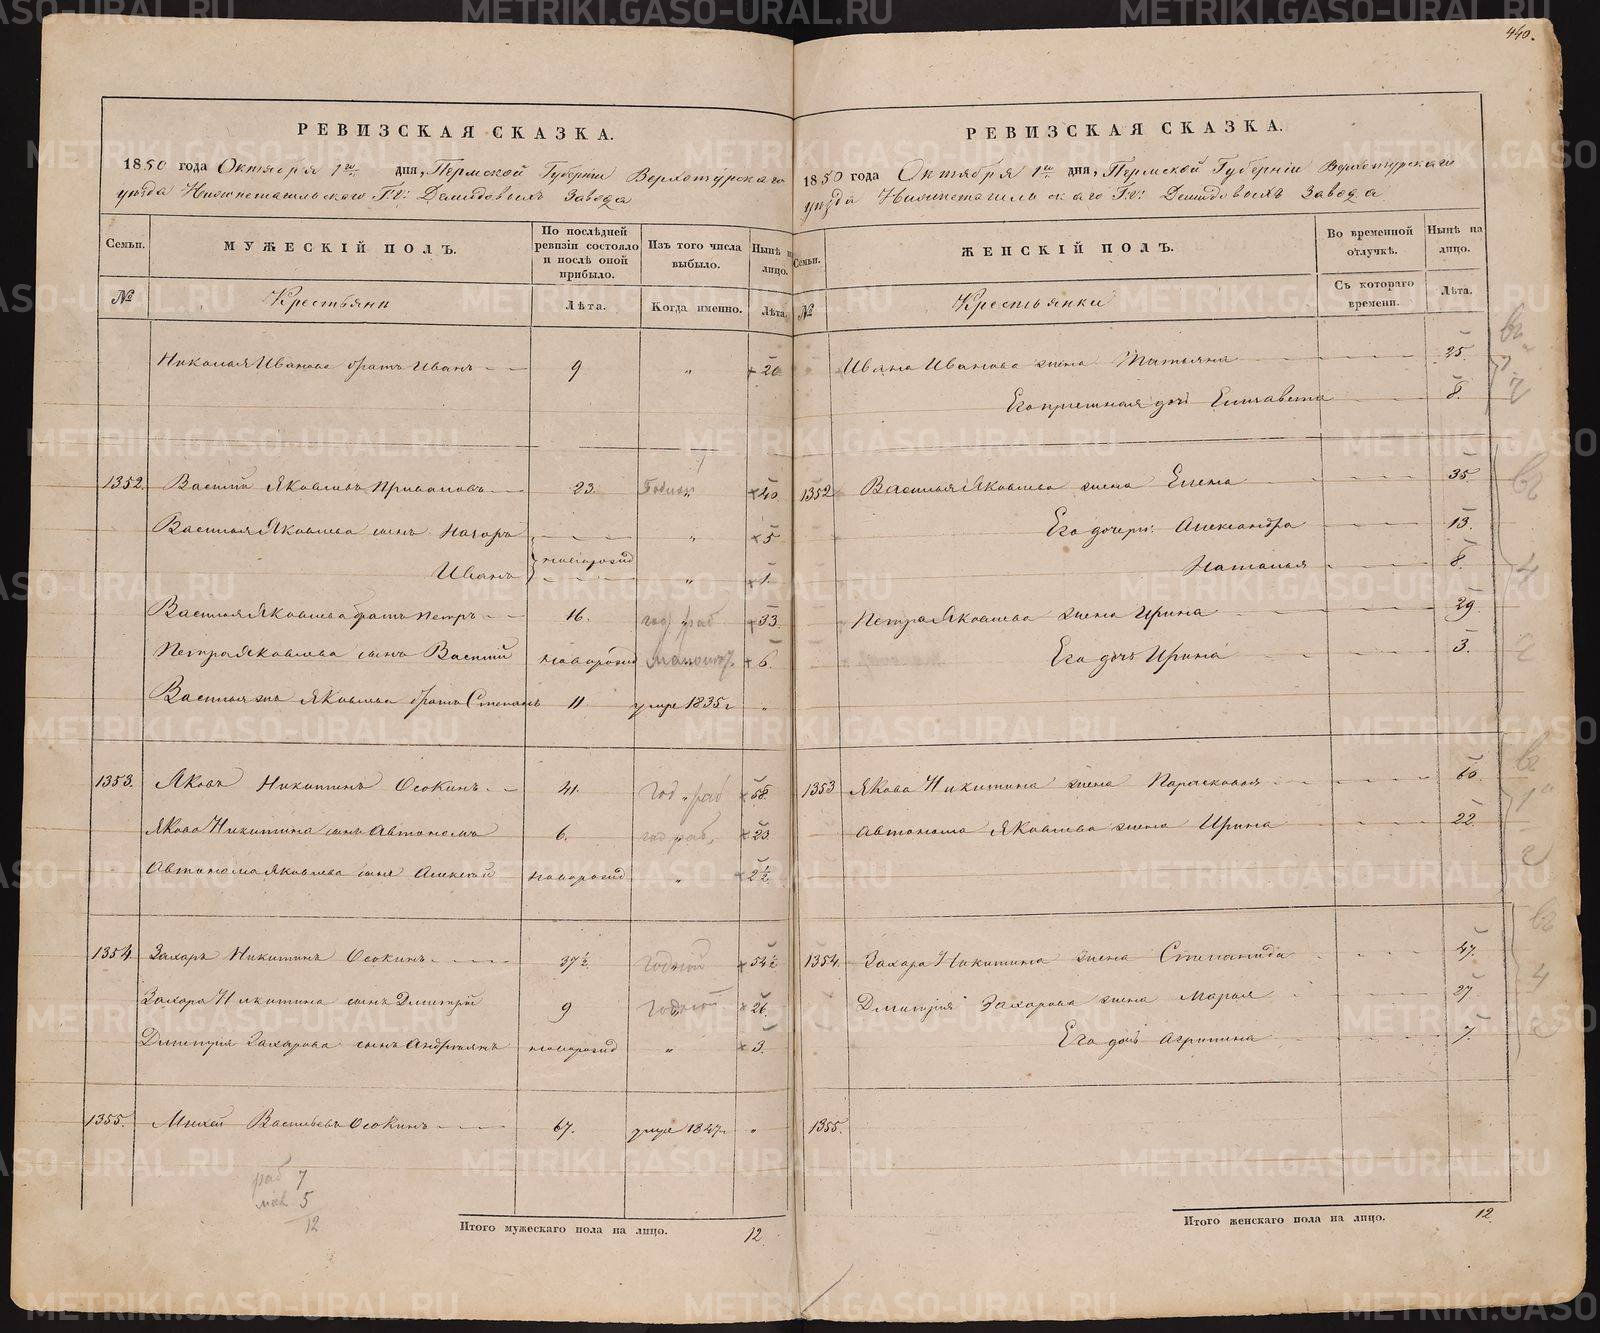 440.
РЕВИЗСКАЯ СКАЗКА.
1850 года Октября 1го дня, Пермской Губерніи Верхотурскаго
уѣзда Нижнетагильскаго Г.г: Демидовыхъ Завода
Семьи. МУЖЕСКІЙ ПОЛЪ. По послѣдней ревизіи состояло и послѣ оной прибыло. Изъ того числа выбыло. Нынѣ на лицо.
№ Крестьяне Лѣта. Когда именно. Лѣта.
Николая Иванова братъ Иванъ 9 " + 26
1352. Василій Яковлевъ Приваловъ 23. Годной + 40
Василья Яковлева сынъ Назаръ " + 5
Иванъ новорожд " + 1
Василья Яковлева братъ Петръ 16. год раб + 33.
Петра Яковлева сынъ Василій новорожд + 6.
Василья жъ Яковлева братъ Степанъ 11 умре 1835 г "
1353. Яковъ Никитинъ Осокинъ 41. год раб + 58
Якова Никитина сынъ Автономъ 6. год раб. + 23
Автонома Яковлева сынъ Алексей новорожд " + 2 1/2
1354. Захаръ Никитинъ Осокинъ 37 1/2 Годной + 54 1/2
Захара Никитина сынъ Дмитрій 9 Годной + 26
Дмитрія Захарова сынъ Андреянъ новорожд " + 3.
1355. Михей Васильевъ Осокинъ 67. умре 1847 г "
раб 7
мал 5
12
Итого мужескаго пола на лицо. 12.
РЕВИЗСКАЯ СКАЗКА.
1850 года Октября 1го дня, Пермской Губерніи Верхотурскаго
уѣзда Нижнетагильскаго Г.г: Демидовыхъ Завода
Семьи. ЖЕНСКІЙ ПОЛЪ. Во временной отлучкѣ. Нынѣ на лицо.
№ Крестьянки Съ котораго времени. Лѣта.
Ивана Иванова жена Татьяна 25
Его приемная дочь Елизавета 8.
1352 Василья Яковлева жена Елена 35.
Его дочери: Александра 13.
Наталья 8.
Петра Яковлева жена Ирина 29
Его дочь Ирина 3.
1353 Якова Никитина жена Парасковья 60.
Автонома Яковлева жена Ирина 22
1354. Захара Никитина жена Степанида 47.
Дмитрія Захарова жена Марья 27
Его дочь Агрипина 7.
1355.
Итого женскаго пола на лицо. 12.
METRIKI.GASO-URAL.RU